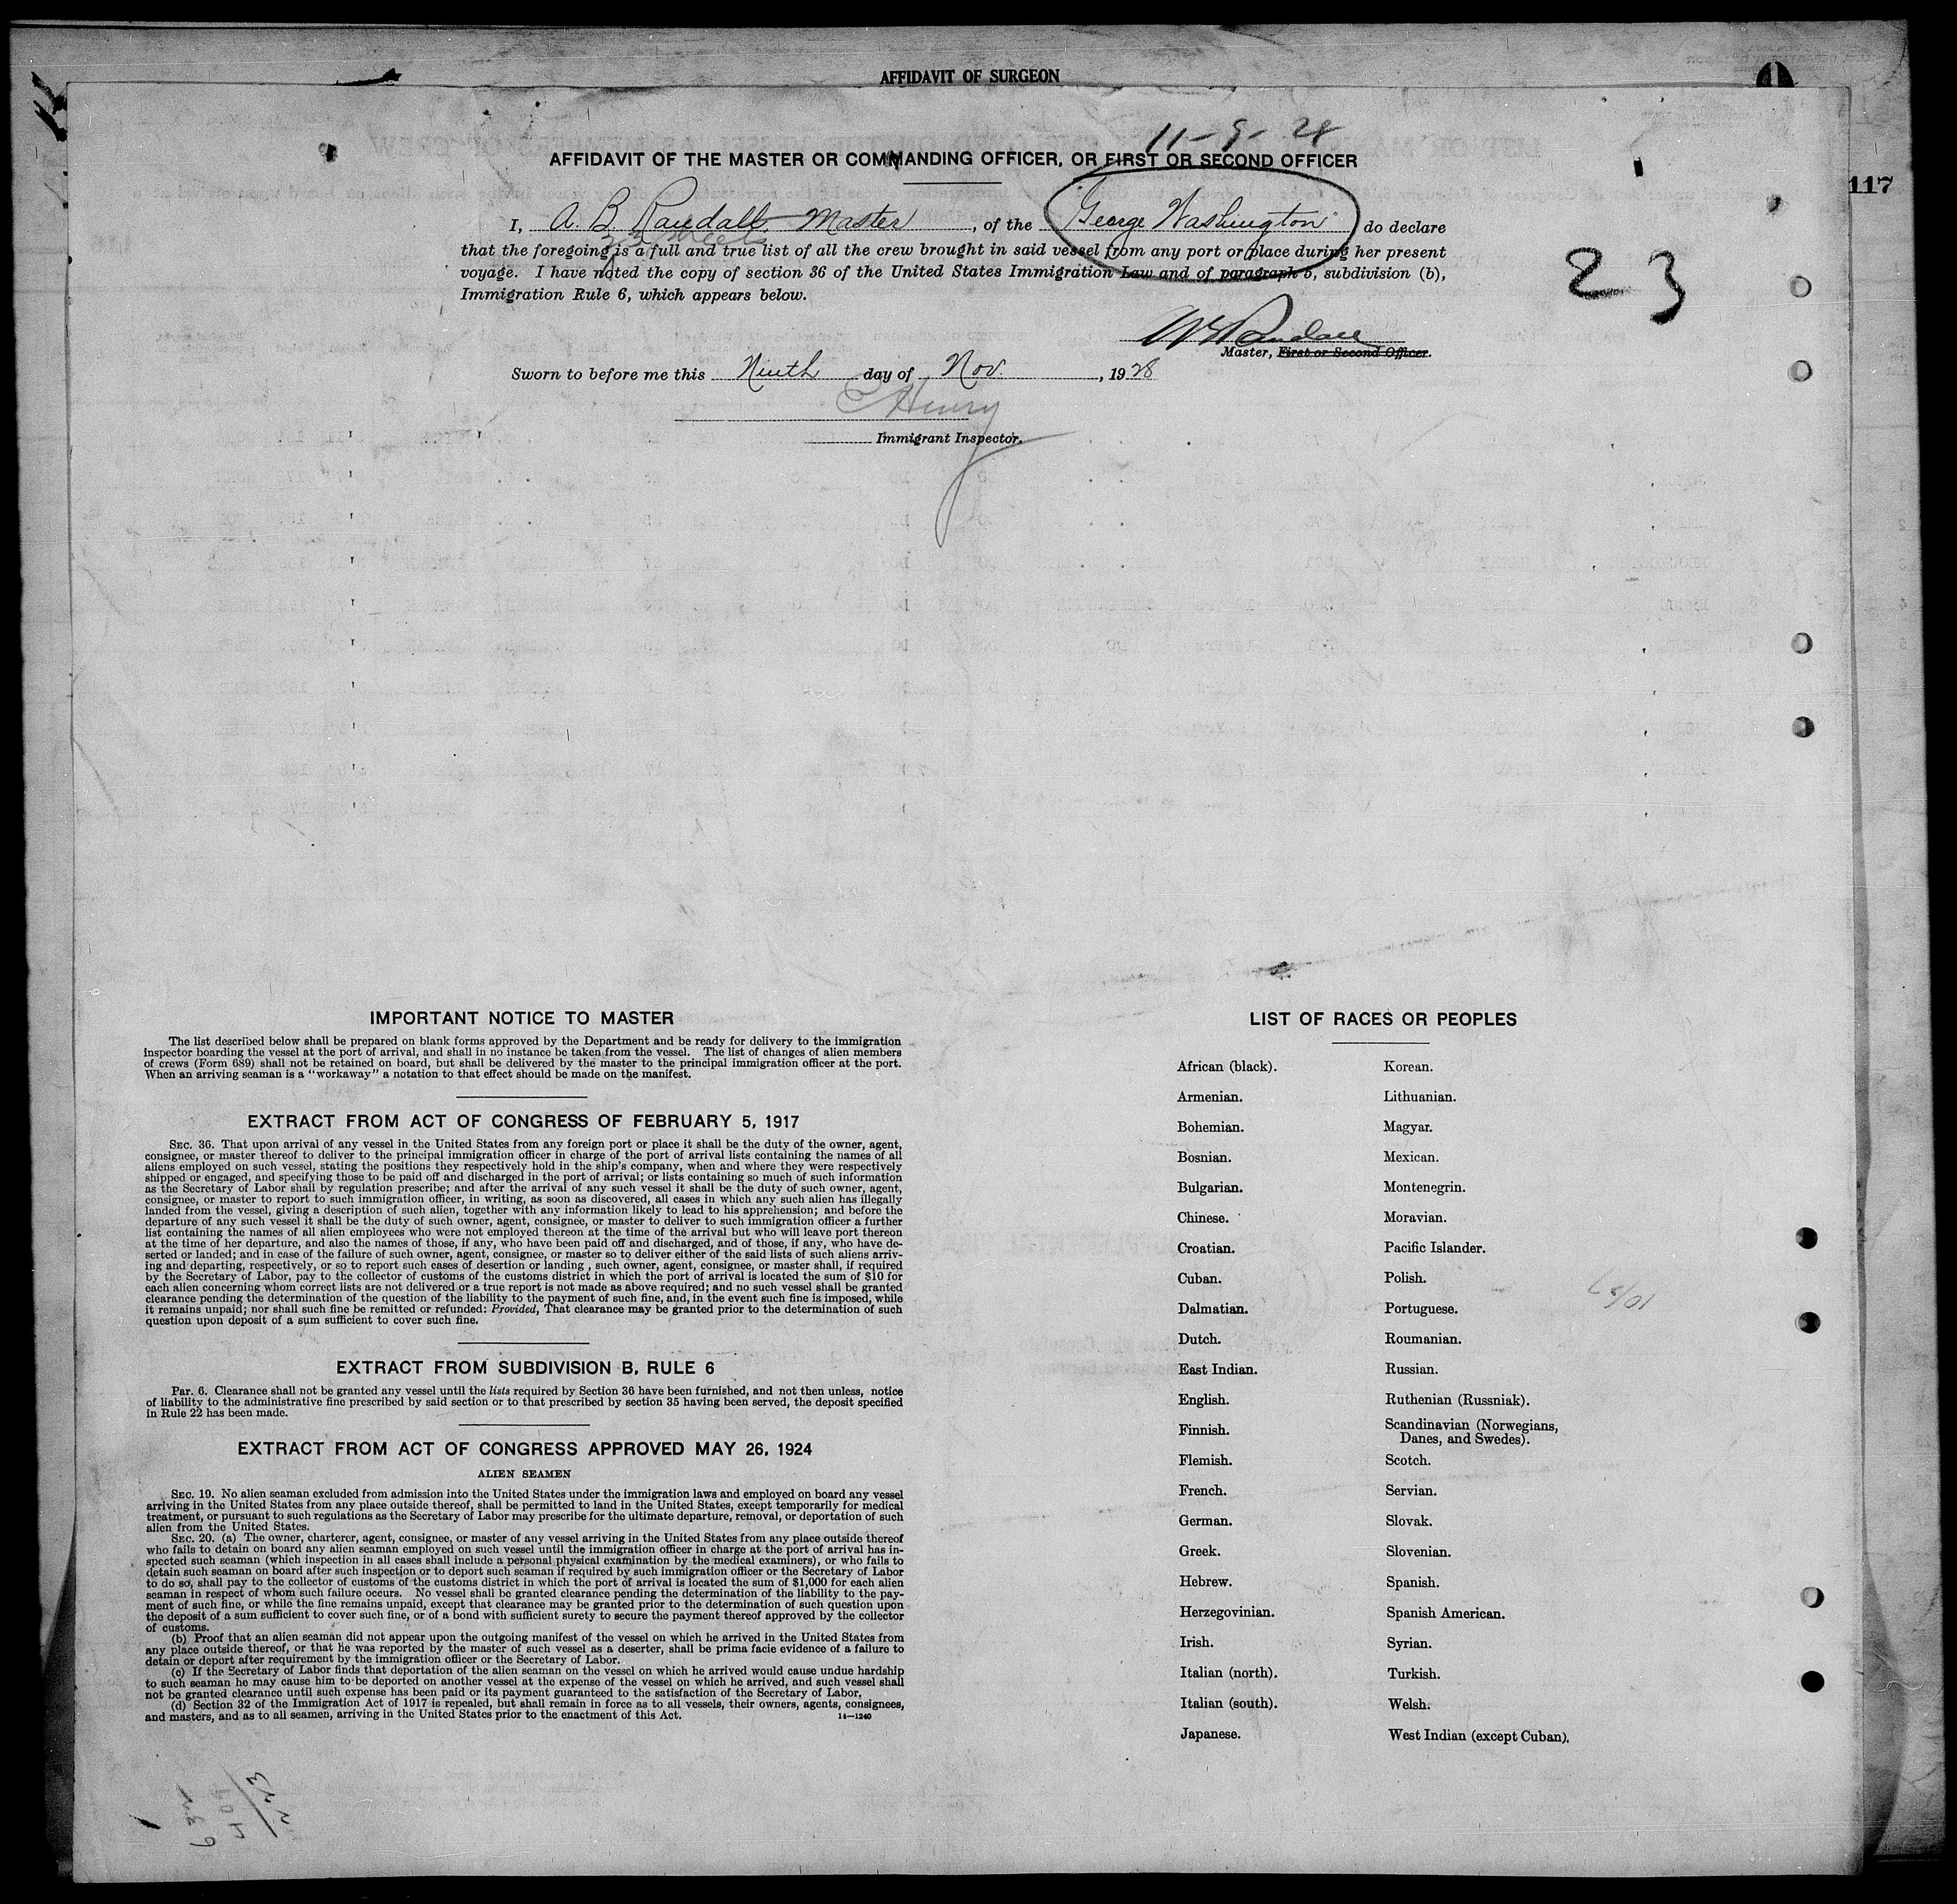 AFFIDAVIT OF SURGEON
11-9-28
AFFIDAVIT OF THE MASTER OR COMMANDING OFFICER, OR FIRST OR SECOND OFFICER
117
I, A. B. Randall Master, of the George Washington do declare
23 sheets
that the foregoing is a full and true list of all the crew brought in said vessel from any port or place during her present
voyage. I have noted the copy of section 36 of the United States Immigration Law and of paragraph 6, subdivision (b),
Immigration Rule 6, which appears below.
23
AB Randall
Master, First or Second Officer.
Sworn to before me this Ninth day of Nov., 1928
C Henry
Immigrant Inspector.
IMPORTANT NOTICE TO MASTER
The list described below shall be prepared on blank forms approved by the Department and be ready for delivery to the immigration
inspector boarding the vessel at the port of arrival, and shall in no instance be taken from the vessel. The list of changes of alien members
of crews (Form 689) shall not be retained on board, but shall be delivered by the master to the principal immigration officer at the port.
When an arriving seaman is a "workaway" a notation to that effect should be made on the manifest.
EXTRACT FROM ACT OF CONGRESS OF FEBRUARY 5, 1917
SEC. 36. That upon arrival of any vessel in the United States from any foreign port or place it shall be the duty of the owner, agent,
consignee, or master thereof to deliver to the principal immigration officer in charge of the port of arrival lists containing the names of all
aliens employed on such vessel, stating the positions they respectively hold in the ship's company, when and where they were respectively
shipped or engaged, and specifying those to be paid off and discharged in the port of arrival; or lists containing so much of such information
as the Secretary of Labor shall by regulation prescribe; and after the arrival of any such vessel it shall be the duty of such owner, agent,
consignee, or master to report to such immigration officer, in writing, as soon as discovered, all cases in which any such alien has illegally
landed from the vessel, giving a description of such alien, together with any information likely to lead to his apprehension; and before the
departure of any such vessel it shall be the duty of such owner, agent, consignee, or master to deliver to such immigration officer a further
list containing the names of all alien employees who were not employed thereon at the time of the arrival but who will leave port thereon
at the time of her departure, and also the names of those, if any, who have been paid off and discharged, and of those, if any, who have de-
serted or landed; and in case of the failure of such owner, agent, consignee, or master so to deliver either of the said lists of such aliens arriv-
ing and departing, respectively, or so to report such cases of desertion or landing , such owner, agent, consignee, or master shall, if required
by the Secretary of Labor, pay to the collector of customs of the customs district in which the port of arrival is located the sum of $10 for
each alien concerning whom correct lists are not delivered or a true report is not made as above required; and no such vessel shall be granted
clearance pending the determination of the question of the liability to the payment of such fine, and, in the event such fine is imposed, while
it remains unpaid; nor shall such fine be remitted or refunded: Provided, That clearance may be granted prior to the determination of such
question upon deposit of a sum sufficient to cover such fine.
EXTRACT FROM SUBDIVISION B, RULE 6
Par. 6. Clearance shall not be granted any vessel until the lists required by Section 36 have been furnished, and not then unless, notice
of liability to the administrative fine prescribed by said section or to that prescribed by section 35 having been served, the deposit specified
in Rule 22 has been made.
EXTRACT FROM ACT OF CONGRESS APPROVED MAY 26, 1924
ALIEN SEAMEN
SEC. 19. No alien seaman excluded from admission into the United States under the immigration laws and employed on board any vessel
arriving in the United States from any place outside thereof, shall be permitted to land in the United States, except temporarily for medical
treatment, or pursuant to such regulations as the Secretary of Labor may prescribe for the ultimate departure, removal, or deportation of such
alien from the United States.
SEC. 20. (a) The owner, charterer, agent, consignee, or master of any vessel arriving in the United States from any place outside thereof
who fails to detain on board any alien seaman employed on such vessel until the immigration officer in charge at the port of arrival has in-
spected such seaman (which inspection in all cases shall include a personal physical examination by the medical examiners), or who fails to
detain such seaman on board after such inspection or to deport such seaman if required by such immigration officer or the Secretary of Labor
to do so, shall pay to the collector of customs of the customs district in which the port of arrival is located the sum of $1,000 for each alien
seaman in respect of whom such failure occurs. No vessel shall be granted clearance pending the determination of the liability to the pay-
ment of such fine, or while the fine remains unpaid, except that clearance may be granted prior to the determination of such question upon
the deposit of a sum sufficient to cover such fine, or of a bond with sufficient surety to secure the payment thereof approved by the collector
of customs.
(b) Proof that an alien seaman did not appear upon the outgoing manifest of the vessel on which he arrived in the United States from
any place outside thereof, or that he was reported by the master of such vessel as a deserter, shall be prima facie evidence of a failure to
detain or deport after requirement by the immigration officer or the Secretary of Labor.
(c) If the Secretary of Labor finds that deportation of the alien seaman on the vessel on which he arrived would cause undue hardship
to such seaman he may cause him to be deported on another vessel at the expense of the vessel on which he arrived, and such vessel shall
not be granted clearance until such expense has been paid or its payment guaranteed to the satisfaction of the Secretary of Labor.
(d) Section 32 of the Immigration Act of 1917 is repealed, but shall remain in force as to all vessels, their owners, agents, consignees,
and masters, and as to all seamen, arriving in the United States prior to the enactment of this Act.
14—1240
LIST OF RACES OR PEOPLES
African (black).
Armenian.
Bohemian.
Bosnian.
Bulgarian.
Chinese.
Croatian.
Cuban.
Dalmatian.
Dutch.
East Indian.
English.
Finnish.
Flemish.
French.
German.
Greek.
Hebrew.
Herzegovinian.
Irish.
Italian (north).
Italian (south).
Japanese.
Korean.
Lithuanian.
Magyar.
Mexican.
Montenegrin.
Moravian.
Pacific Islander.
Polish.
Portuguese.
Roumanian.
Russian.
Ruthenian (Russniak).
Scandinavian (Norwegians,
Danes, and Swedes).
Scotch.
Servian.
Slovak.
Slovenian.
Spanish.
Spanish American.
Syrian.
Turkish.
Welsh.
West Indian (except Cuban).